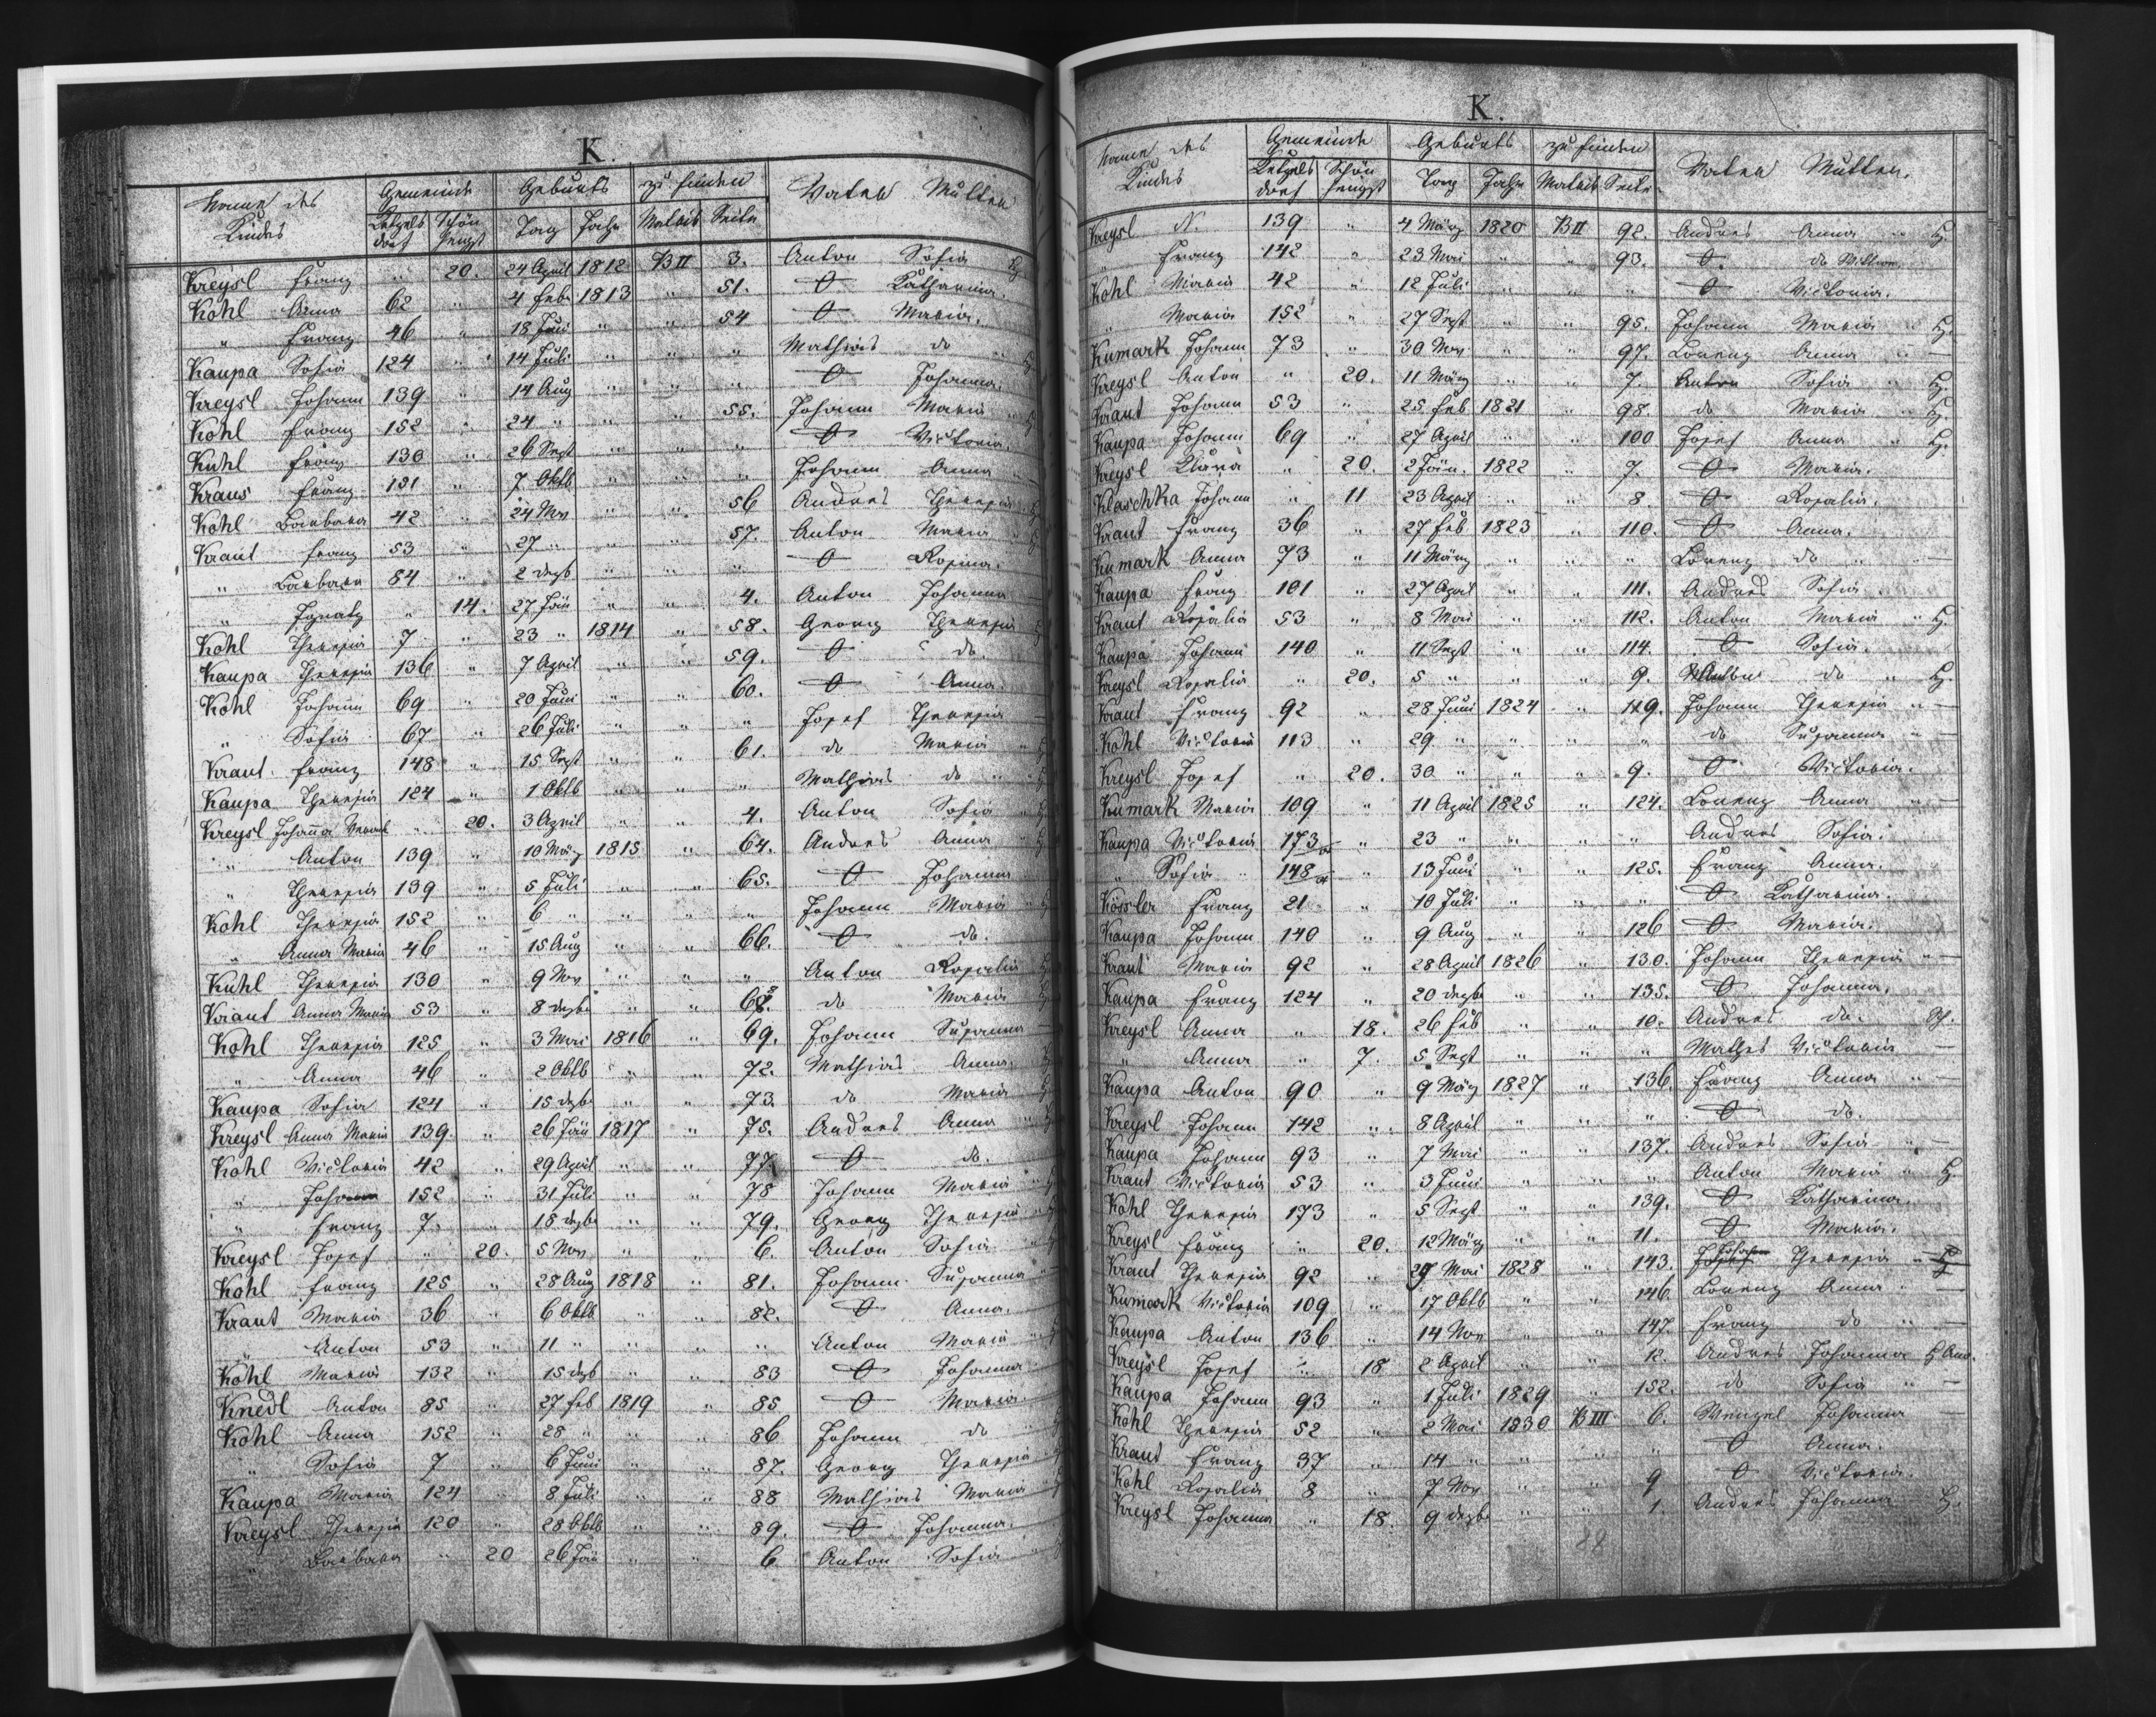 K.
Name des Kindes Gemeinde Geburts zu finden Vater Mutter
Ketzelsdorf Schönhengst Tag Jahr Matrik Seite
Kreysl Franz " 20. 24 April 1812 B II 3. Anton Sofia
Kohl Anna 62 " 4 Feb 1813 " 51. O Katharina.
" Franz 46 " 18 Juni " " 54 O Maria.
Kaupa Sofia 124 " 14 Juli " " " Mathias do
Kreysl Johann 139 " 14 Aug " " " O Johanna.
Kohl Franz 152 " 24 " " " 55. Johann Maria
Kuhl Franz 130 " 26 Sept " " " O Victoria.
Kraus Franz 131 " 7 Oktb " " " Johann Anna
Kohl Barbara 42 " 24 Nov " " 56 Andres Theresia
Kraut Franz 53 " 27 " " " 57. Anton Maria
" Barbara 84 " 2 dezb " " " O Rosina.
" Ignatz " 14. 27 Jän " " 4. Anton Johanna
Kohl Theresia 7 " 23 " 1814 " 58. Georg Theresia
Kaupa Theresia 136 " 7 April " " 59. O do.
Kohl Johann 69 " 20 Juni " " 60. O Anna.
" Sofia 67 " 26 Juli " " " Josef Theresia
Kraut Franz 148 " 15 Sept " " 61. do Maria
Kaupa Theresia 124 " 1 Oktb " " " Mathias do
Kreysl Johanna " 20. 3 April " " 4. Anton Sofia
" Anton 139 " 10 März 1815 " 64. Andres Anna
" Theresia 139 " 5 Juli " " 65. O Johanna
Kohl Theresia 152 " 6 " " " " Johann Maria
" Anna Maria 46 " 15 Aug " " 66. O do.
Kuhl Theresia 130 " 9 Nov " " " Anton Rosalia
Kraut Anna Maria 53 " 8 dezbr " " 68. do Maria
Kohl Theresia 125 " 3 Mai 1816 " 69. Johann Susanna
" Anna 46 " 2 Oktb " " 72. Mathias Anna.
Kaupa Sofia 124 " 15 dezb " " 73. do Maria
Kreysl Anna Maria 139. " 26 Jän 1817 " 75. Andres Anna
Kohl Victoria 42 " 29 April " " 77. O do.
" Johann 152 " 31 Juli " " 78 Johann Maria
" Franz 7. " 15 dezb " " 79. Georg Theresia
Kreysl Josef " 20. 5 Nov " " 6. Anton Sofia
Kohl Franz 125 " 28 Aug 1818 " 81. Johann Susanna
Kraut Maria 36 " 6 Oktb " " 82. O Anna.
" Anton 53 " 11 " " " " Anton Maria
Kohl Maria 132 " 15 dezb " " 83 O Johanna
Knedl Anton 85 " 27 Feb 1819 " 85 O Maria.
Kohl Anna 152 " 28 " " " 86 Johann do
" Sofia 7 " 6 Juni " " 87. Georg Theresia
Kaupa Maria 124 " 8 Juli " " 88 Mathias Maria
Kreysl Theresia 120 " 28 Oktb " " 89. O Johanna.
" Barbara " 20 26 Jän " " 6. Anton Sofia
K.
Name des Kindes Gemeinde Geburts zu finden Vater Mutter.
Ketzelsdorf Schönhengst Tag Jahr Matrik Seite
Kreysl N. 139 " 4 März 1820 B II 92. Andres Anna " H.
" Franz 142 " 23 Mai " " 93. O. do
Kohl Maria 42 " 12 Juli " " " O Victoria.
" Maria 152 " 27 Sept " " 95. Johann Maria " H.
Kumark Johann 73 " 30 Nov " " 97. Lorenz Anna " —
Kreysl Anton " 20. 11 März " " 7. Anton Sofia " H.
Kraut Johann 53 " 25 Feb 1821 " 98. do Maria " H.
Kaupa Johann 69 " 27 April " " 100 Josef Anna " H.
Kreysl Klara " 20. 2 Jän. 1822 " 7. O Maria.
Klaschka Johann " 11 23 April " " 8. O Rosalia.
Kraut Franz 36 " 27 Feb 1823 " 110. O Anna.
Kumark Anna 73 " 11 März " " " Lorenz do " —
Kaupa Franz 101 " 27 April " " 111. Andres Sofia
Kraut Rosalia 53 " 8 Mai " " 112. Anton Maria " H.
Kaupa Johann 140 " 11 Sept " " 114. O Sofia.
Kreysl Rosalia " 20. 5 " " " 9. Anton do " H.
Kraut Franz 92 " 28 Juni 1824 " 119. Johann Theresia " —
Kohl Victoria 113 " 29. " " " " do Susanna " —
Kreysl Josef " 20. 30 " " " 9. O Victoria.
Kumark Maria 109 " 11 April 1825 " 124. Lorenz Anna " —
Kaupa Victoria 173 " 23 " " " " Andres Sofia.
" Sofia 148 " 13 Juni " " 125. Franz Anna.
Kössler Franz 21 " 10 Juli " " " O Katharina.
Kaupa Johann 140 " 9 Aug " " 126 O Maria.
Kraut Maria 92 " 28 April 1826 " 130. Johann Theresia " —
Kaupa Franz 124 " 20 dezb " " 135. O Johanna.
Kreysl Anna " 18. 26 Feb " " 10. Andres do.
" Anna " 7. 5 Sept " " " Mathes Victoria —
Kaupa Anton 90 " 9 März 1827 " 136. Franz Anna " —
Kreysl Johann 142 " 8 April " " " O do.
Kaupa Johann 93 " 7 Mai " " 137. Andres Sofia " —
Kraut Victoria 53 " 3 Juni " " " Anton Maria " H.
Kohl Theresia 173 " 5 Sept " " 139. O Katharina.
Kreysl Franz " 20. 12 März " " 11. O Maria.
Kraut Theresia 92 " 29 Mai 1828 " 143. Johann Theresia " —
Kumark Victoria 109 " 17 Oktb " " 146. Lorenz Anna —
Kaupa Anton 136 " 14 Nov " " 147. Franz do " —
Kreysl Josef " 18 2 April " " 12. Andres Johanna
Kaupa Johann 93 " 1 Juli 1829 " 152. do Sofia " —
Kohl Theresia 52 " 2 Mai 1830 B III 6. Wenzel Johanna —
Kraut Franz 37 " 14 " " " " O Anna.
Kohl Rosalia 8 " 7 Nov " " 9 O Victoria.
Kreysl Johanna " 18. 9 dezb " " 1. Andres Johanna H.